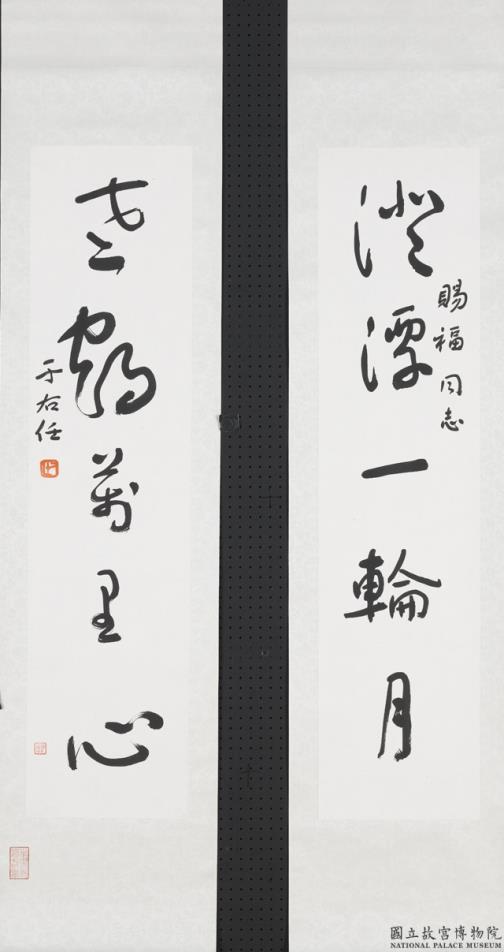 澄潭一輪月
賜福同志
老鶴萬里心
于右任
國立故宮博物院
NATIONAL PALACE MUSEUM